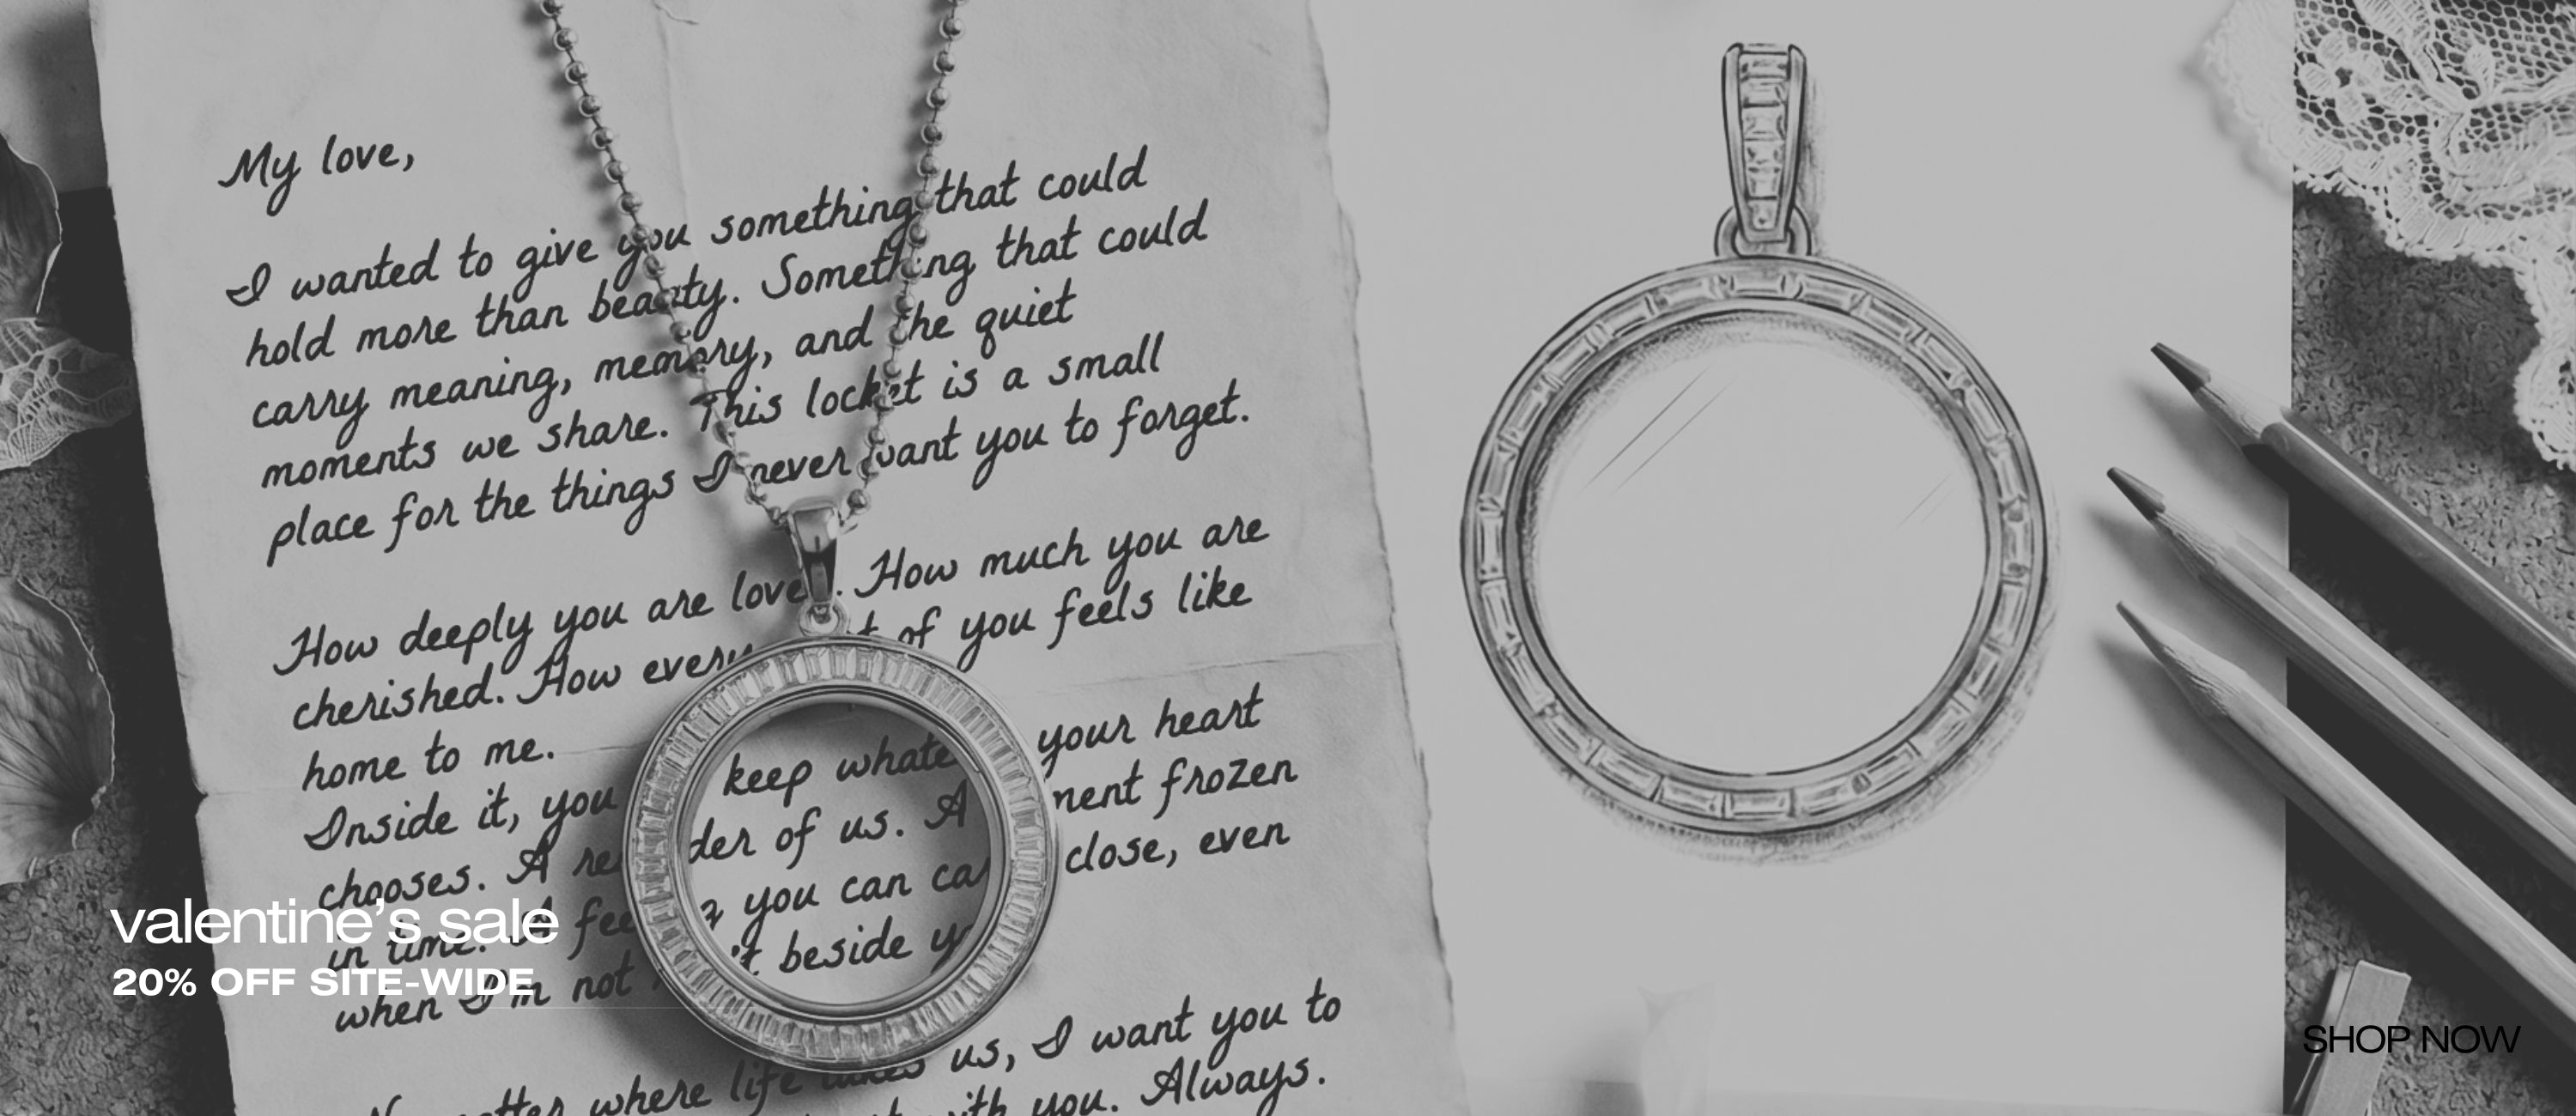 My love,
I wanted to give you something that could
hold more than beauty. Something that could
carry meaning, memory, and the quiet
moments we share. This locket is a small
place for the things I never want you to forget.
How deeply you are love . How much you are
cherished. How every of you feels like
home to me.
Inside it, you keep your heart
chooses. A of us. A frozen
in time. A you can close, even
when I'm not beside
where life takes us, I want you to
with you. Always.
valentine's sale
20% OFF SITE-WIDE
SHOP NOW